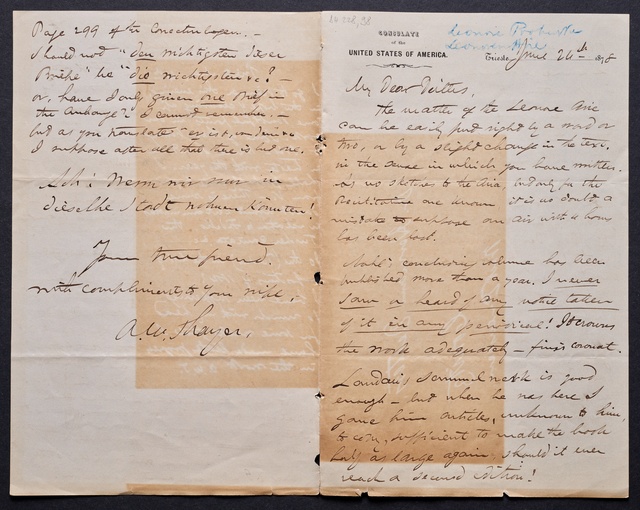 CONSULATE
of the
UNITED STATES OF AMERICA.
Trieste, June 26th 1878
My Dear Deiters,
The matter of the Leonore Aria
can be easily put right by a word or
two, or by a slight change in the text.
in the sense in which you have written.
no sketches to the Aria, but only for the
Recitative are known it is no doubt a
mistake to suppose an air with a horn
has been lost.
Nohl's concluding volume has been
published more than a year. I never
saw or heard of any notice taken
of it in any periodical! It crowns
the work adequately — finis coronat.
is good
enough — but when he was here I
gave him articles, unknown to him,
to copy, sufficient to make the book
half as large again, should it ever
reach a second edition!
Page 299 of the —
Should not "den wichtigsten dieser
Briefe" be "die wichtigsten &c? —
or, have I only given one Brief in
the Anhange? I cannot remember. —
but as you
I suppose after all that there is but one.
Ach! Wenn wir nur in
dieselbe Stadt wohnen könnten!
Your true friend.
with compliments to your wife,
A. W. Thayer.